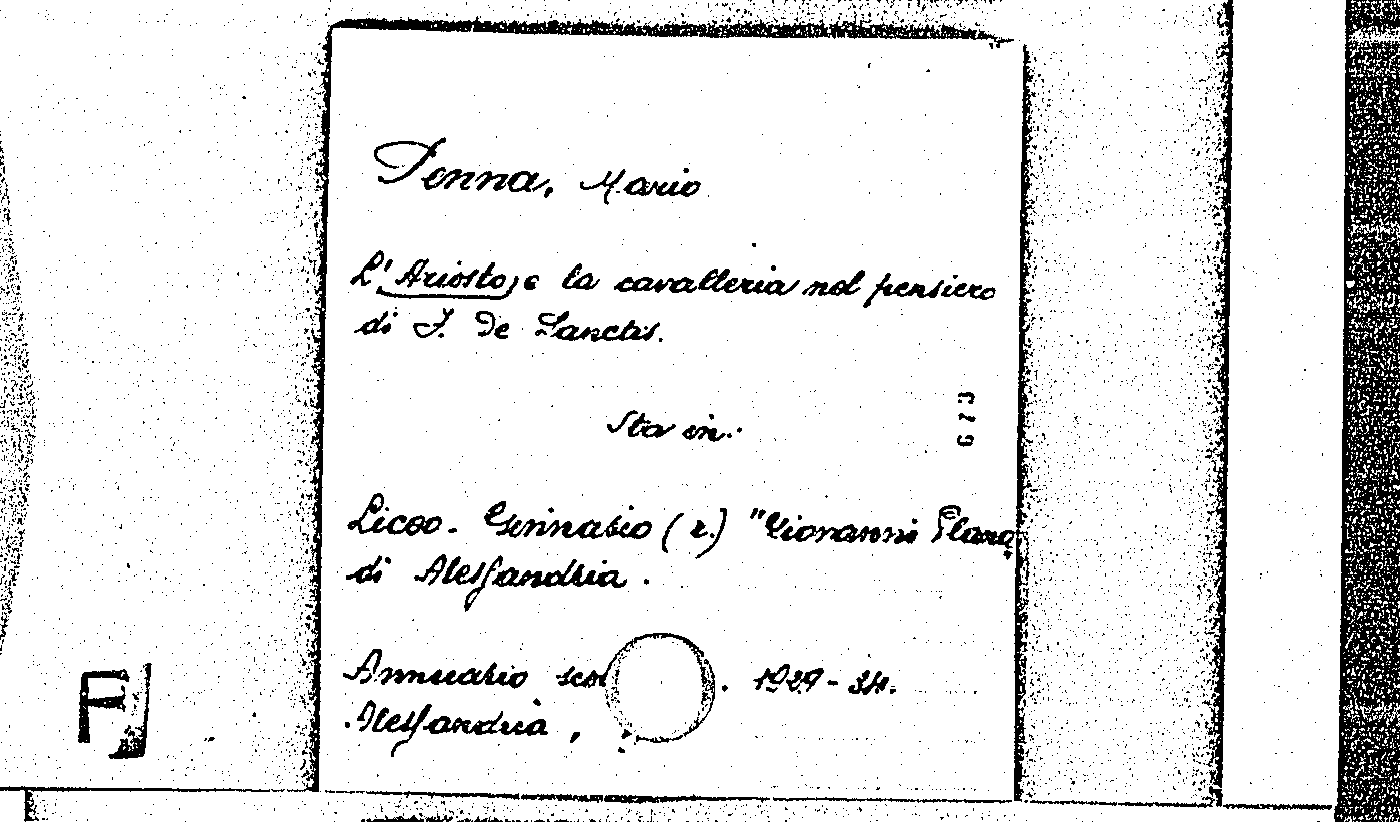 Penna, Mario
L'Ariosto, e la cavalleria nel pensiero
di F. De Sanctis.
Sta in:
673
Liceo-Ginnasio (r.) "Giovanni Plana"
di Alessandria.
Annuario 1929-34.
Alessandria,